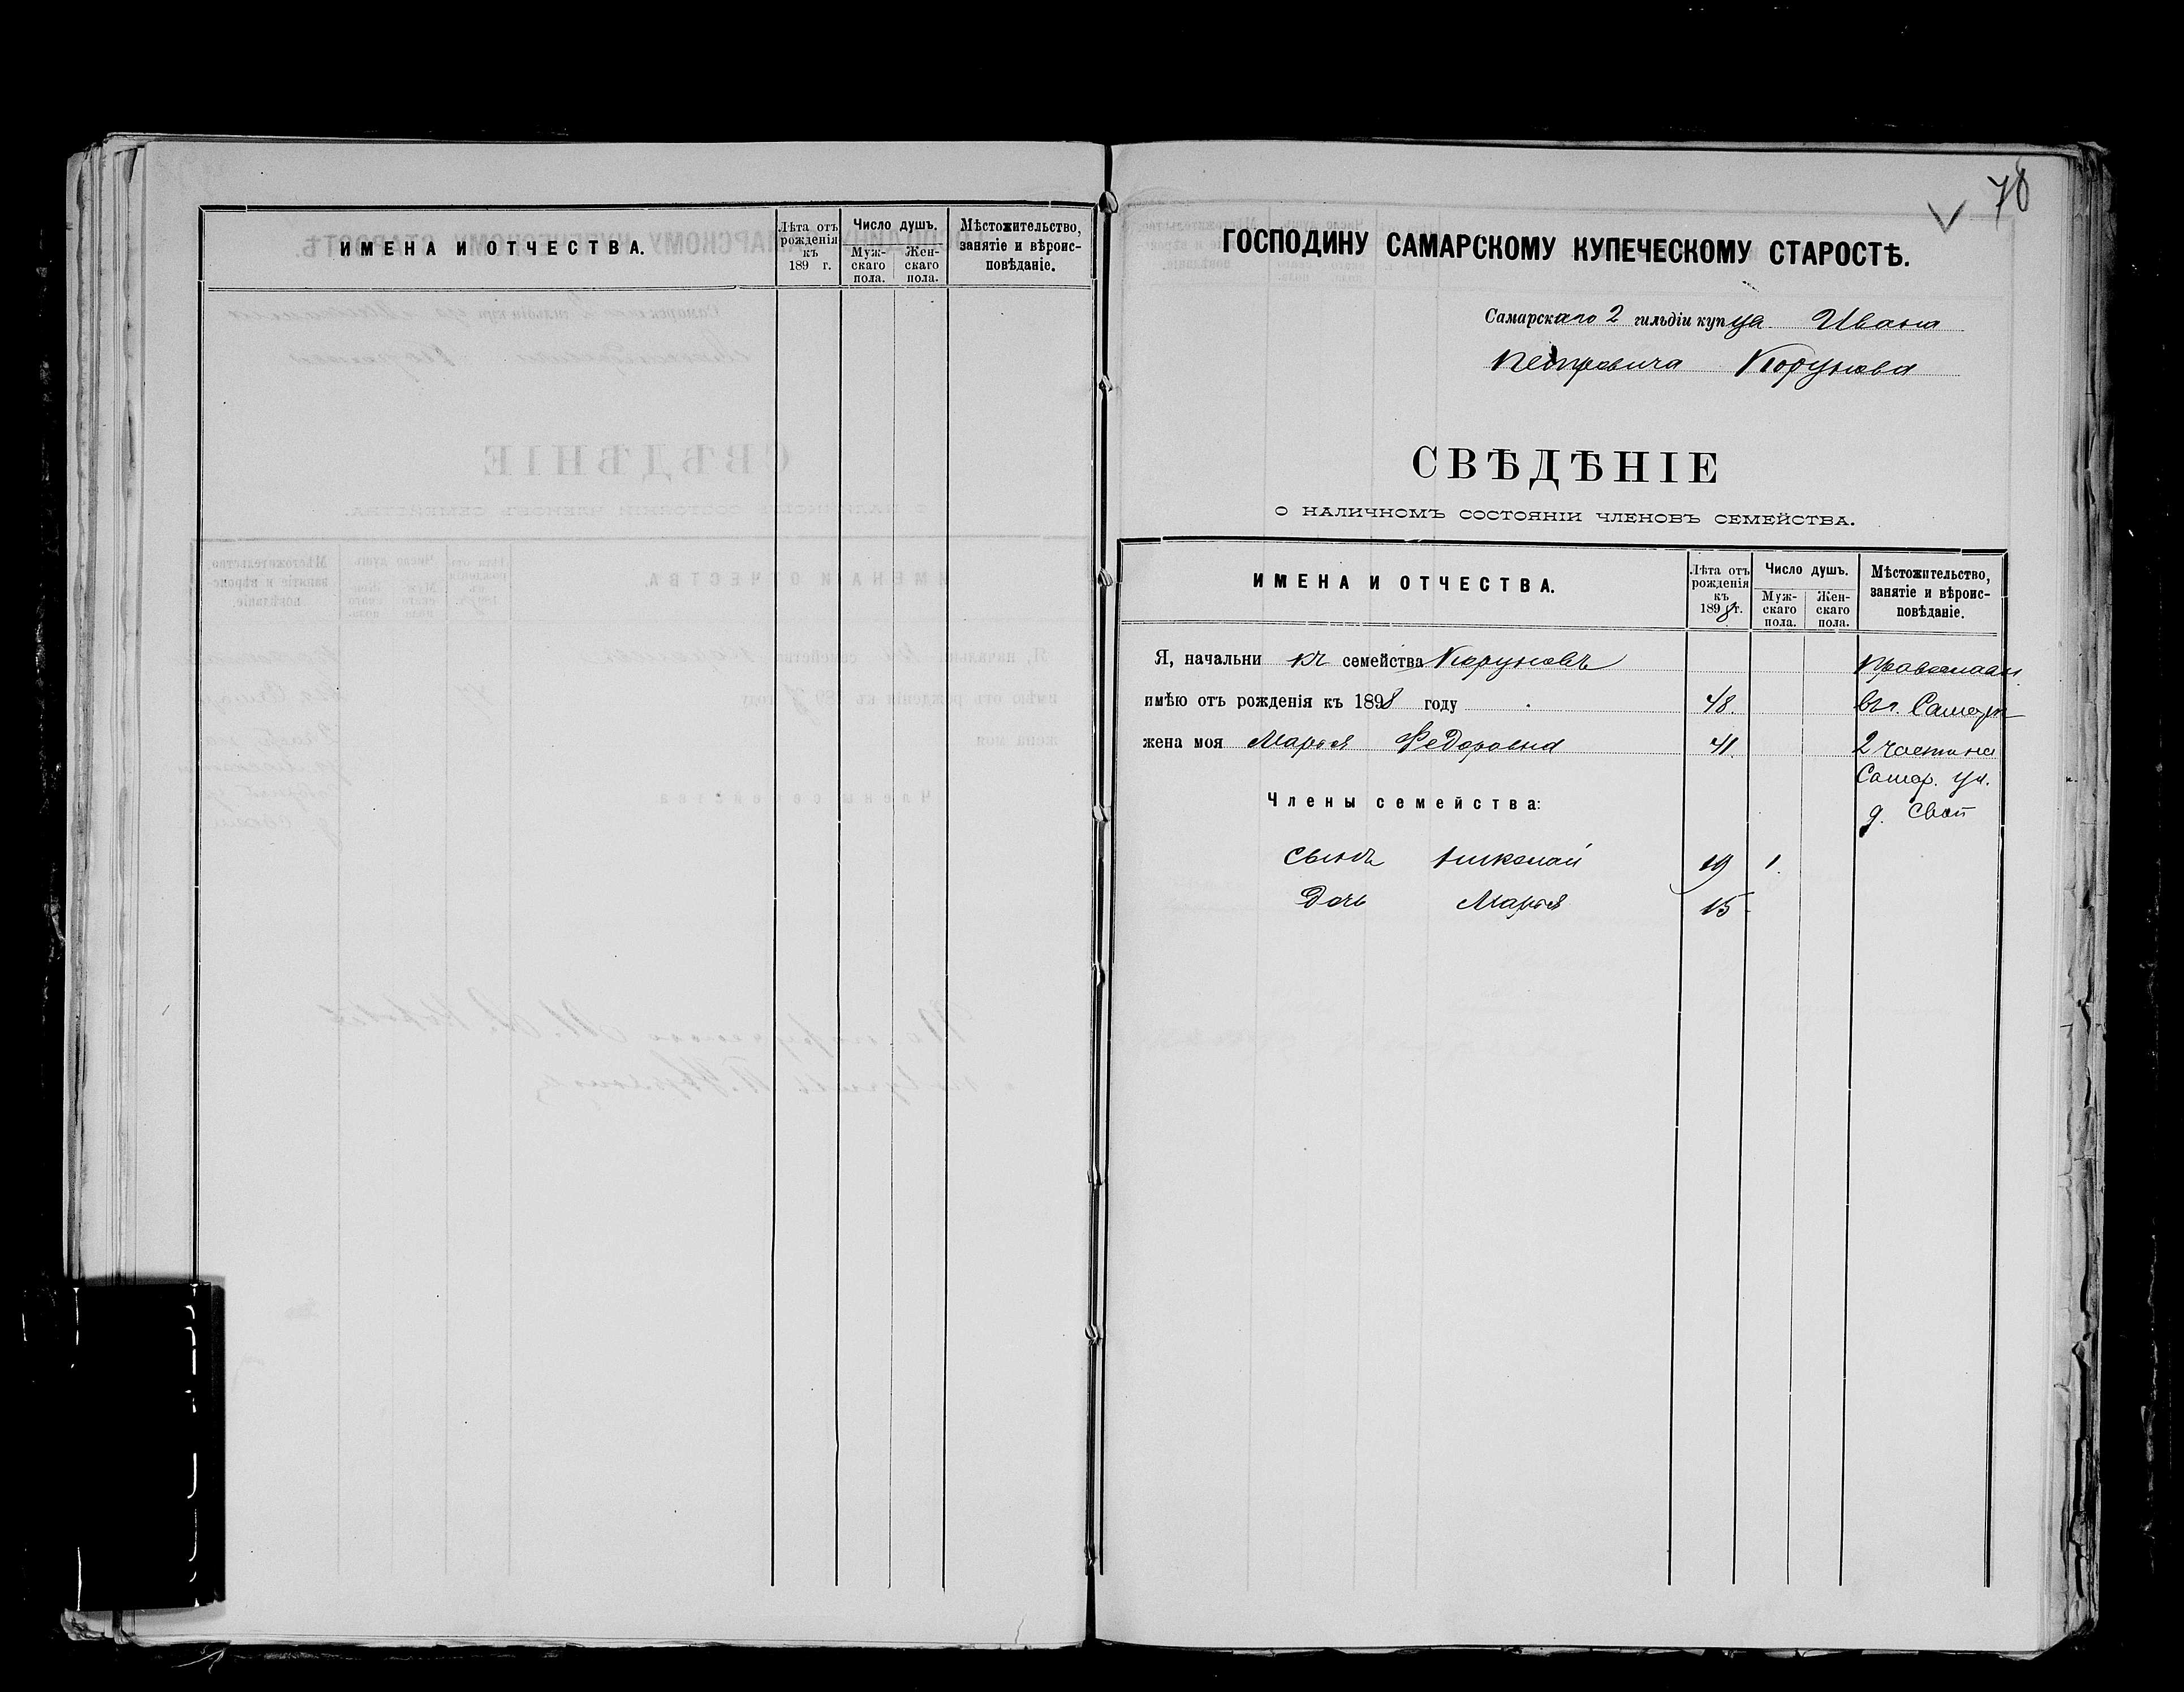 ИМЕНА И ОТЧЕСТВА.
Лѣта отъ рожденія къ 189 г.
Число душъ.
Мужскаго пола.
Женскаго пола.
Мѣстожительство, занятіе и вѣроисповѣданіе.
78
ГОСПОДИНУ САМАРСКОМУ КУПЕЧЕСКОМУ СТАРОСТѢ.
Самарскаго 2 гильдіи купца Ивана
Петровича Корунова
СВѢДѢНІЕ
О НАЛИЧНОМЪ СОСТОЯНІИ ЧЛЕНОВЪ СЕМЕЙСТВА.
ИМЕНА И ОТЧЕСТВА.
Лѣта отъ рожденія къ 1898 г.
Число душъ.
Мужскаго пола.
Женскаго пола.
Мѣстожительство, занятіе и вѣроисповѣданіе.
Я, начальникъ семейства Коруновъ
имѣю отъ рожденія къ 1898 году 48. Въ г. Самар
жена моя Марья Федоровна 41. 2 части на
Самар. ул.
Члены семейства:
д. свой
сынъ Николай 19 1.
Дочь Марья 15